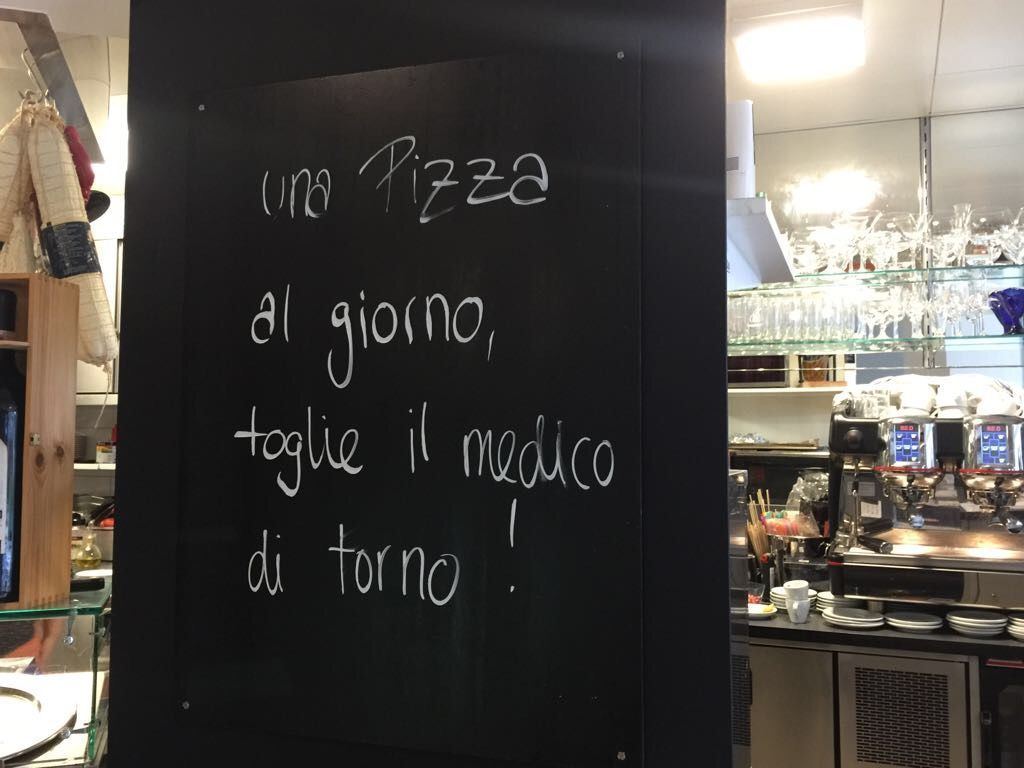 una Pizza
al giorno,
toglie il medico
di torno!